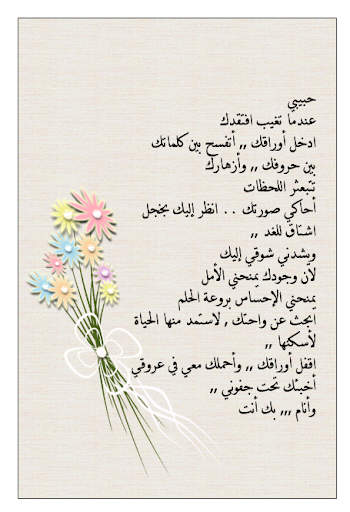 حبيبي
عندما تغيب افتقدك
ادخل أوراقك ,, أتفسح بين كلماتك
بين حروفك ,, وأزهارك
تتبعثر اللحظات
أحاكي صورتك .. انظر إليك بخجل
اشتاق للغد ,,
ويشدني شوقي إليك
لأن وجودك يمنحني الأمل
يمنحني الإحساس بروعة الحلم
أبحث عن واحتك , لاستمد منها الحياة
لأسكنها ,,
اقفل أوراقك ,, وأحملك معي في عروقي
أخبئك تحت جفوني ,,
وأنام ,,, بك أنت